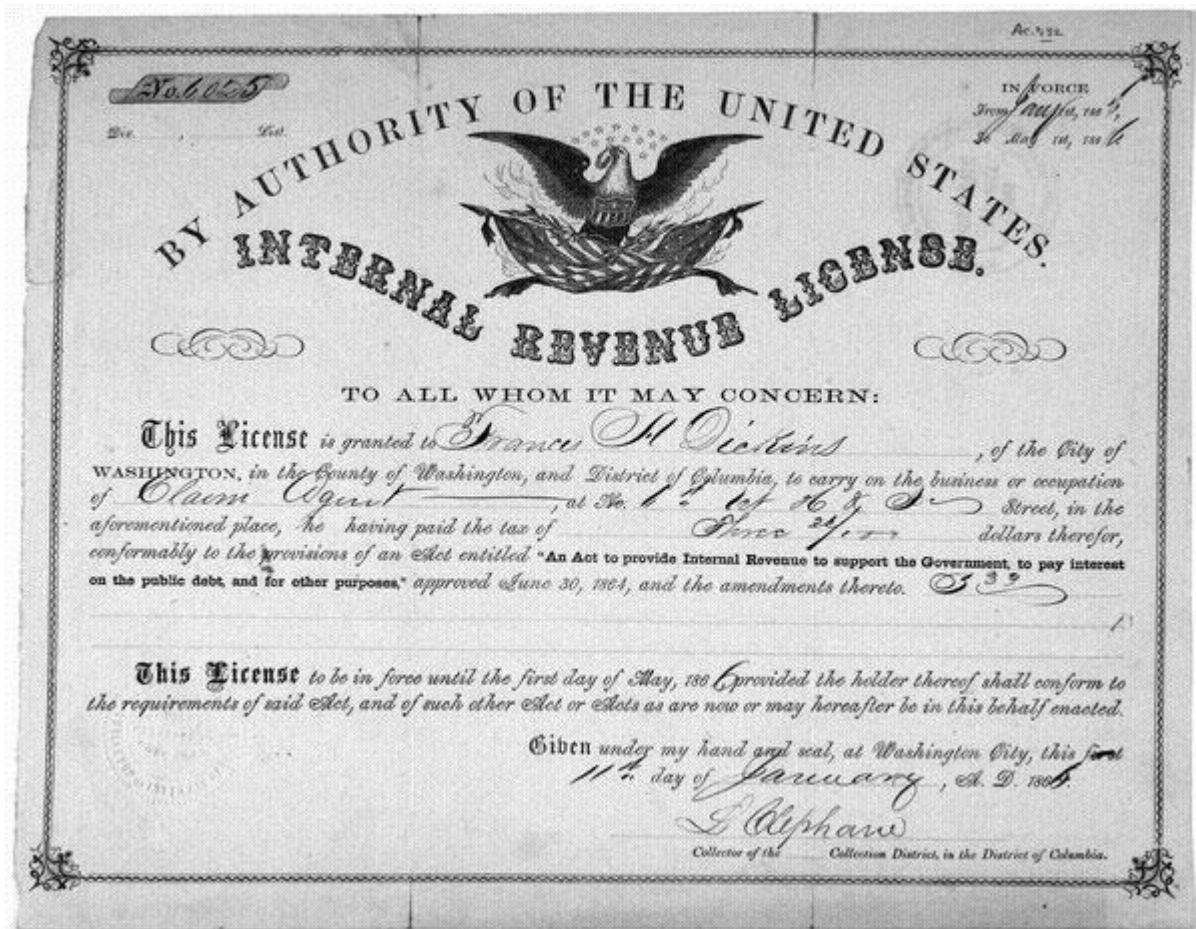 Ac. 482
No. 6025
Div. , Dist.
IN FORCE
From Jany 1st, 186
To May 1st, 1866
BY AUTHORITY OF THE UNITED STATES.
INTERNAL REVENUE LICENSE.
TO ALL WHOM IT MAY CONCERN:
This License is granted to Francis H Dickins , of the City of
WASHINGTON, in the County of Washington, and District of Columbia, to carry on the business or occupation
of Claim Agent , at No. Street, in the
aforementioned place, he having paid the tax of Three dollars therefor,
conformably to the provisions of an Act entitled "An Act to provide Internal Revenue to support the Government, to pay interest
on the public debt, and for other purposes," approved June 30, 1864, and the amendments thereto.
This License to be in force until the first day of May, 1866 provided the holder thereof shall conform to
the requirements of said Act, and of such other Act or Acts as are now or may hereafter be in this behalf enacted.
Given under my hand and seal, at Washington City, this first
11th day of January , A. D. 186
L Clephane
Collector of the Collection District, in the District of Columbia.